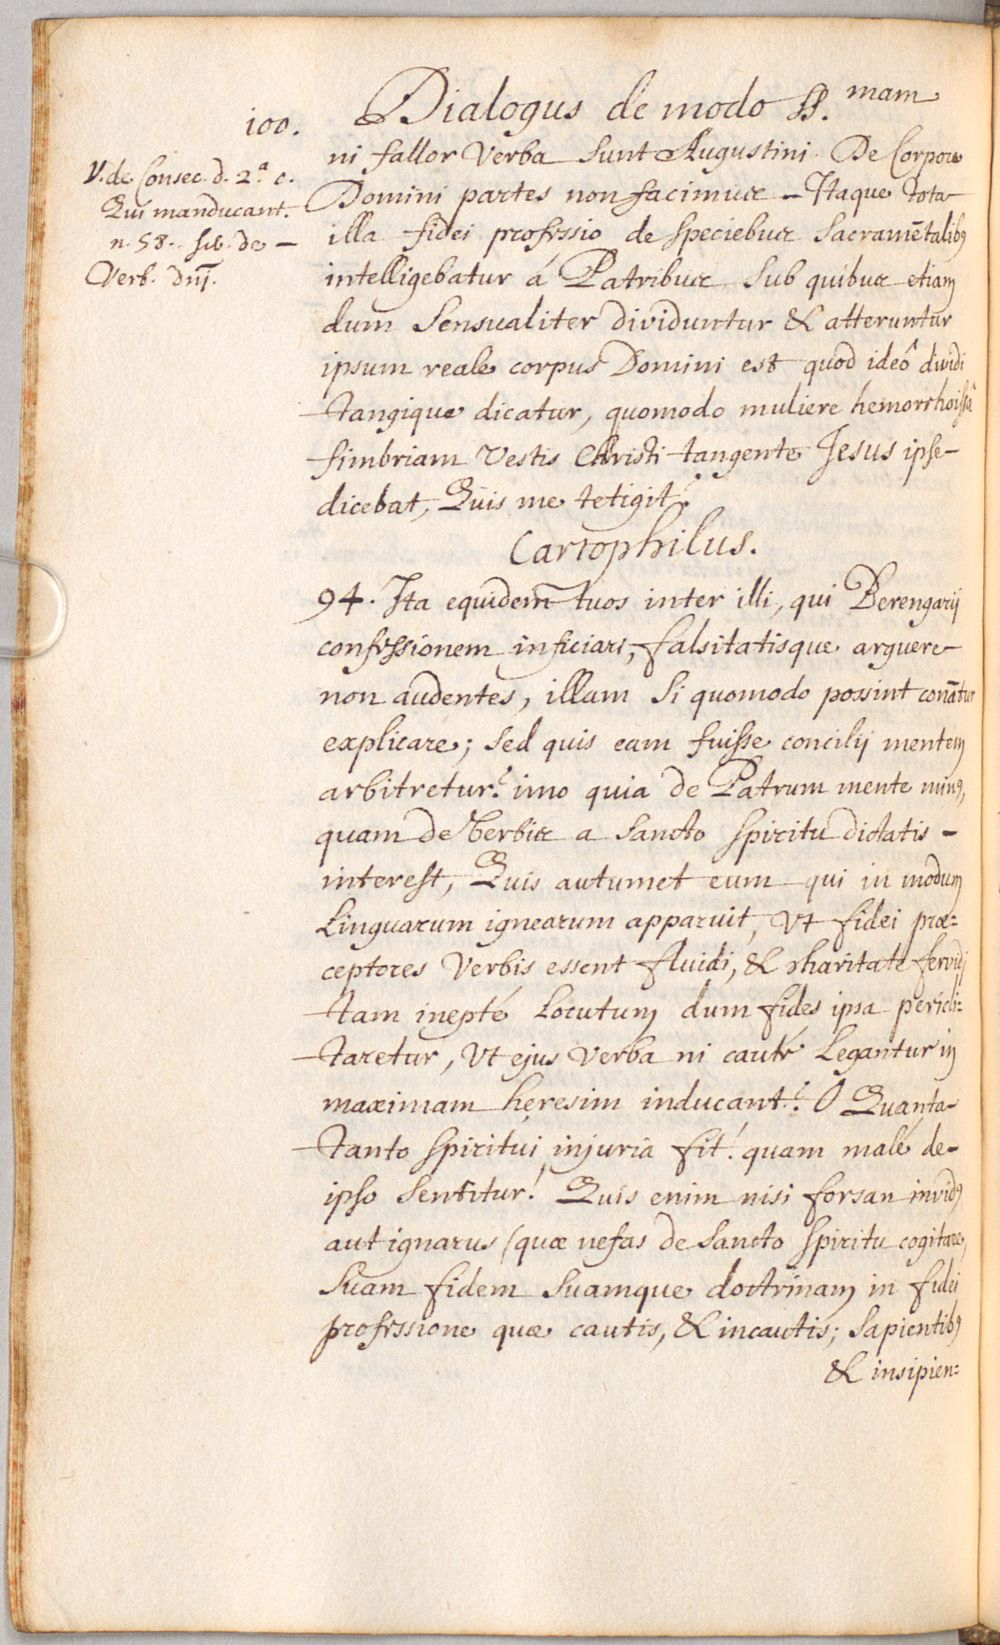 100.
Dialogus de modo SS.mam
V. de Consec. d. 2.ª c.
Qui manducant.
n. 58. sib. de –
Verb. Dñj.
ni fallor Verba Sunt Augustini. De Corpore
Domini partes non facimus – Itaque tota
illa fidei professio de speciebus Sacramētalibꝰ
intelligebatur á Patribus Sub quibus etiam
dum Sensualiter dividuntur & atteruntur
ipsum reale corpus Domini est quod ideô dividi
tangique dicatur, quomodo muliere hemorrhoissâ
fimbriam Vestis Christi tangente Jesus ipse –
dicebat, Quis me tetigit?
Cartophilus.
94. Ita equidem tuos inter illi, qui Berengarij
confessionem inficiari, falsitatisque arguere –
non audentes, illam Si quomodo possint conātur
explicare; Sed quis eam fuisse concilij mentem
arbitretur? imo quia de Patrum mente minꝰ,
quam de Verbis a Sancto Spiritu dictatis –
interest, Quis autumet eum qui in modum
Linguarum ignearum apparuit, Vt fidei præ=
ceptores Verbis essent fluidi, & charitate fervidi
tam inepté Locutum dum fides ipsa pericli=
taretur, Vt ejus Verba ni cauté Legantur in
maximam heresim inducant? O Quanta
tanto Spiritui injuria fit! quam malé de –
ipso Sentitur! Quis enim nisi forsan invidꝰ
aut ignarus (quæ nefas de Sancto Spiritu cogitare,
Suam fidem Suamque doctrinam in fidei
professione quæ cautis, & incautis; Sapientibꝰ
& insipien=